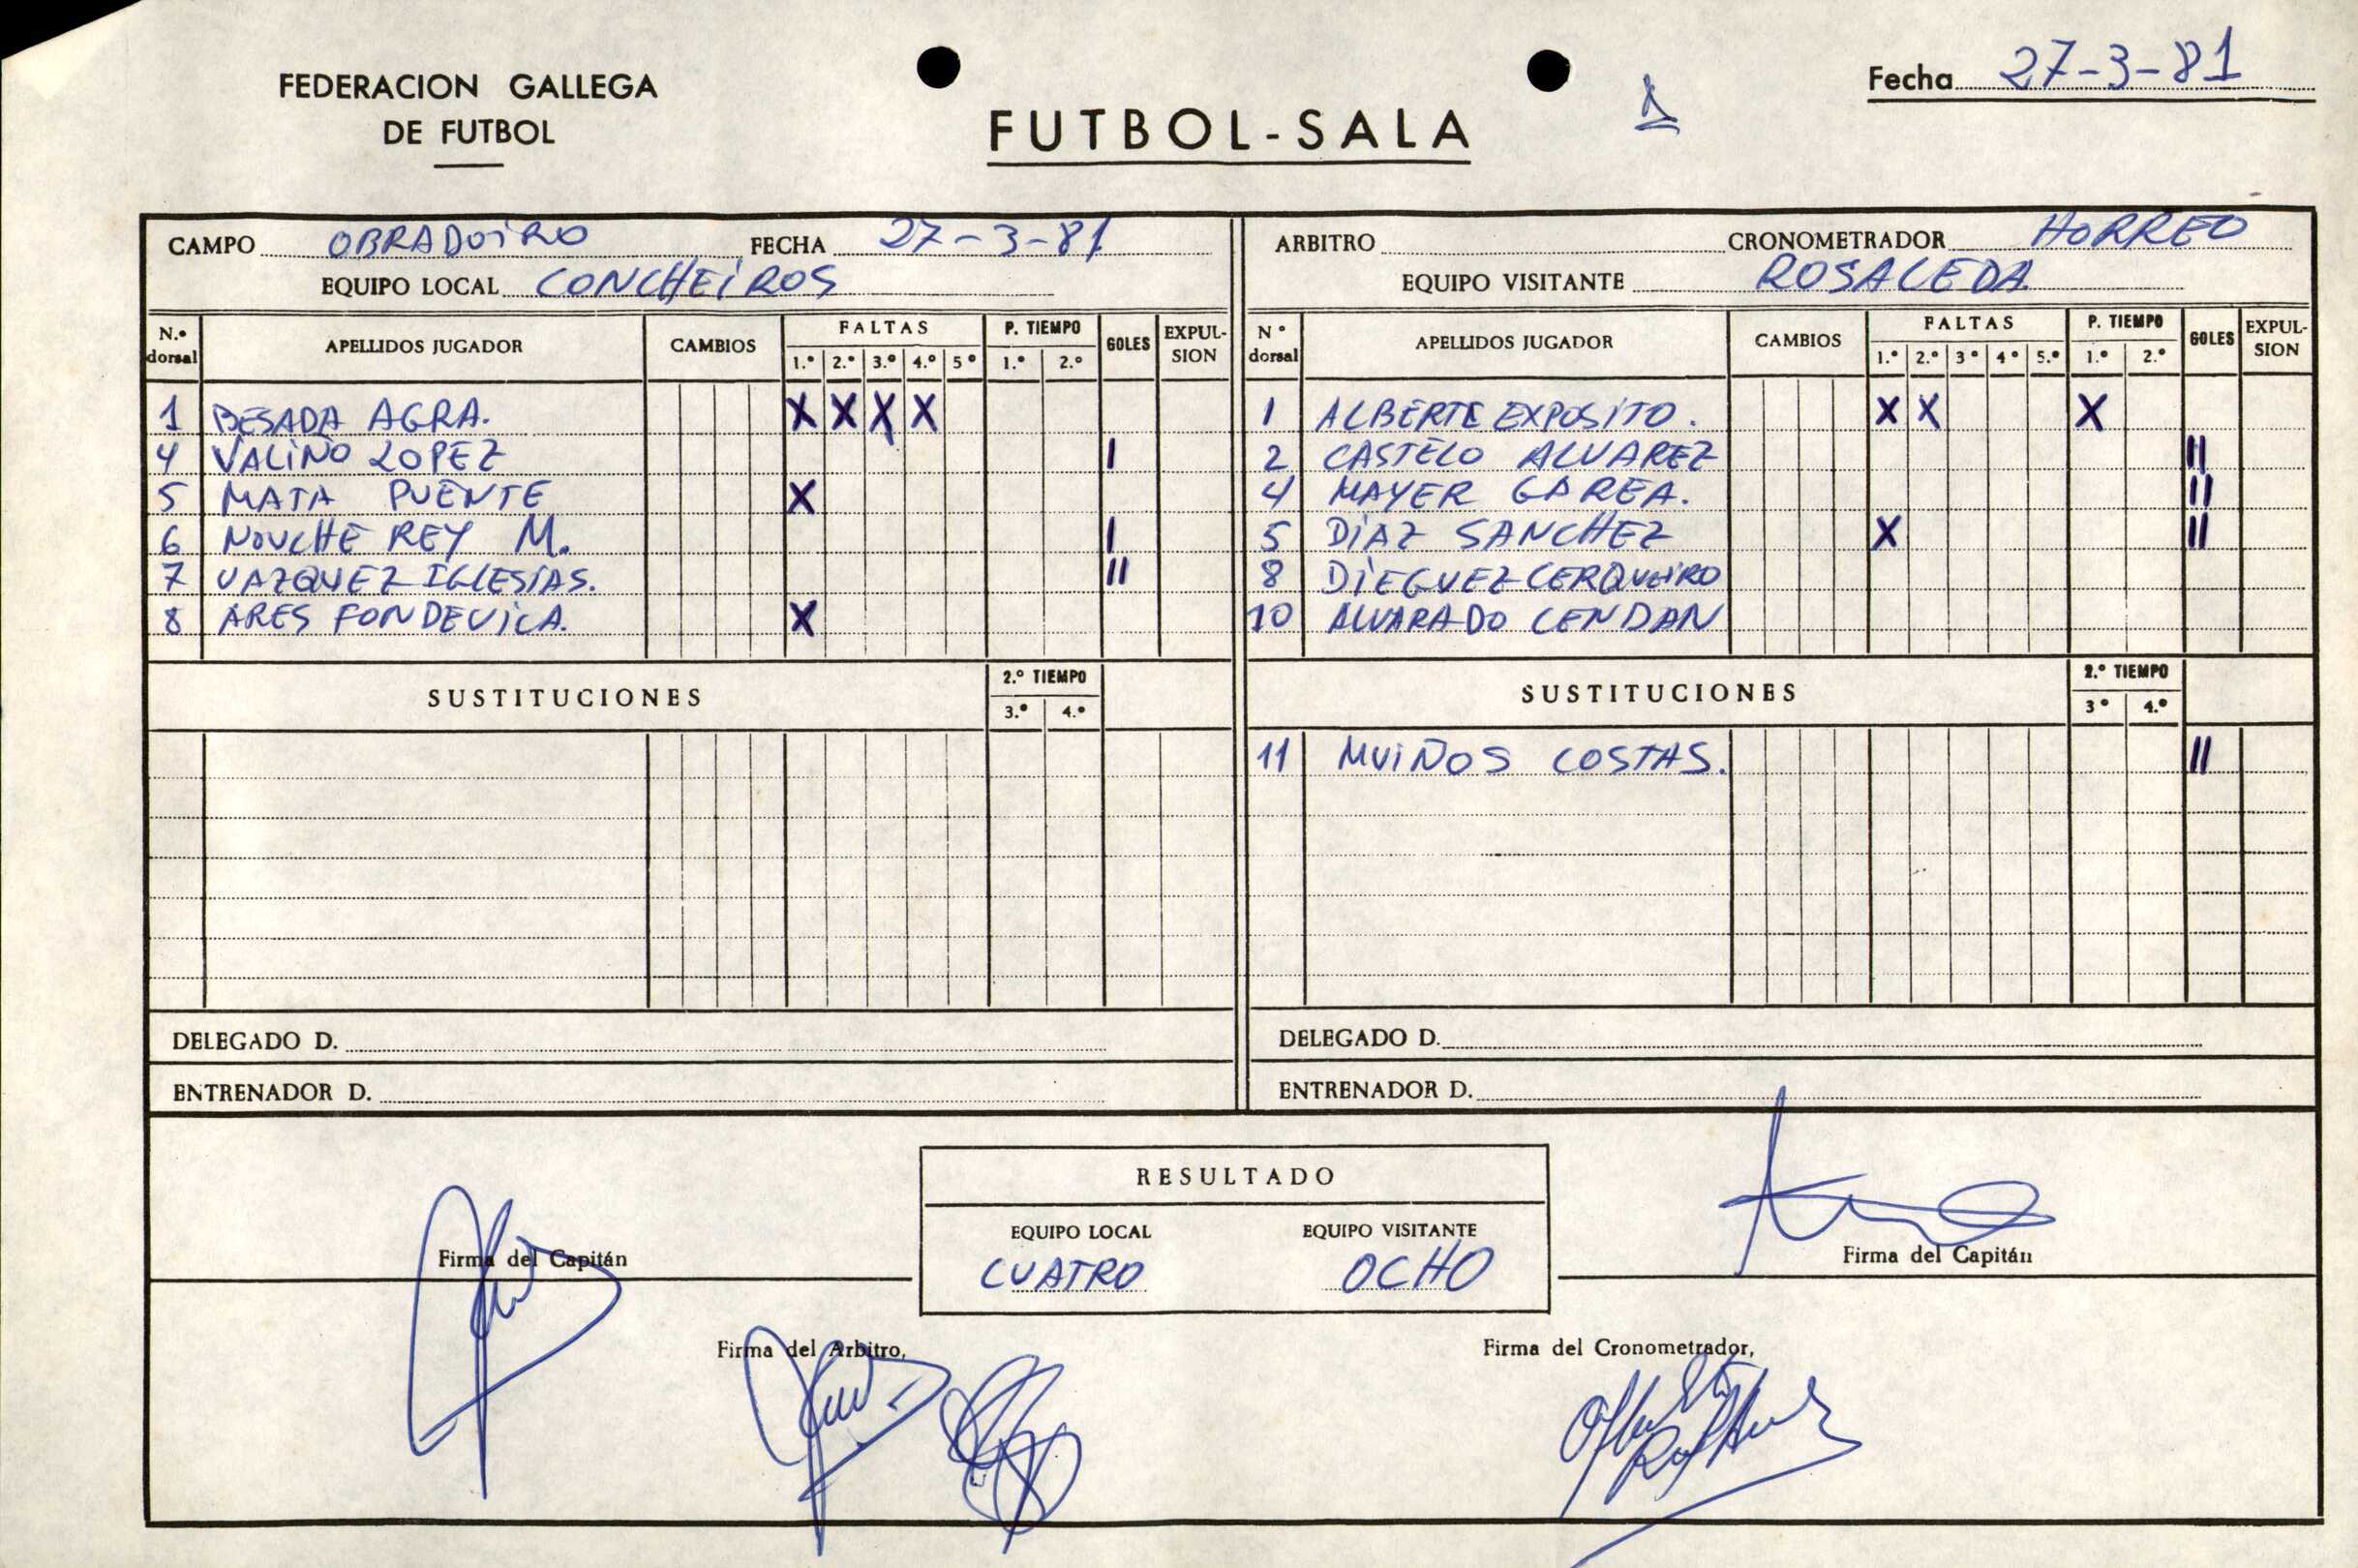 FEDERACION GALLEGA
DE FUTBOL
FUTBOL-SALA
Fecha 27-3-81
CAMPO OBRADOIRO FECHA 27-3-81
EQUIPO LOCAL CONCHEIROS
N.º dorsal APELLIDOS JUGADOR CAMBIOS FALTAS 1.º 2.º 3.º 4.º 5º P. TIEMPO 1.º 2.º GOLES EXPUL-SION
1 BESADA AGRA. X X X X
4 VALIÑO LOPEZ I
5 MATA PUENTE X
6 NOUCHE REY M. I
7 VAZQUEZ IGLESIAS. II
8 ARES FONDEVILA. X
SUSTITUCIONES 2.º TIEMPO 3.º 4.º
DELEGADO D.
ENTRENADOR D.
ARBITRO CRONOMETRADOR HORREO
EQUIPO VISITANTE ROSALEDA
Nº dorsal APELLIDOS JUGADOR CAMBIOS FALTAS 1.º 2.º 3º 4º 5.º P. TIEMPO 1.º 2.º GOLES EXPUL-SION
1 ALBERTE EXPOSITO. X X X
2 CASTELO ALVAREZ II
4 MAYER GAREA. II
5 DIAZ SANCHEZ X II
8 DIEGUEZ CERQUEIRO
10 ALVARADO CENDAN
SUSTITUCIONES 2.º TIEMPO 3º 4.º
11 MUIÑOS COSTAS. II
DELEGADO D.
ENTRENADOR D.
RESULTADO
EQUIPO LOCAL EQUIPO VISITANTE
CUATRO OCHO
Firma del Capitán
Firma del Capitán
Firma del Arbitro,
Firma del Cronometrador,